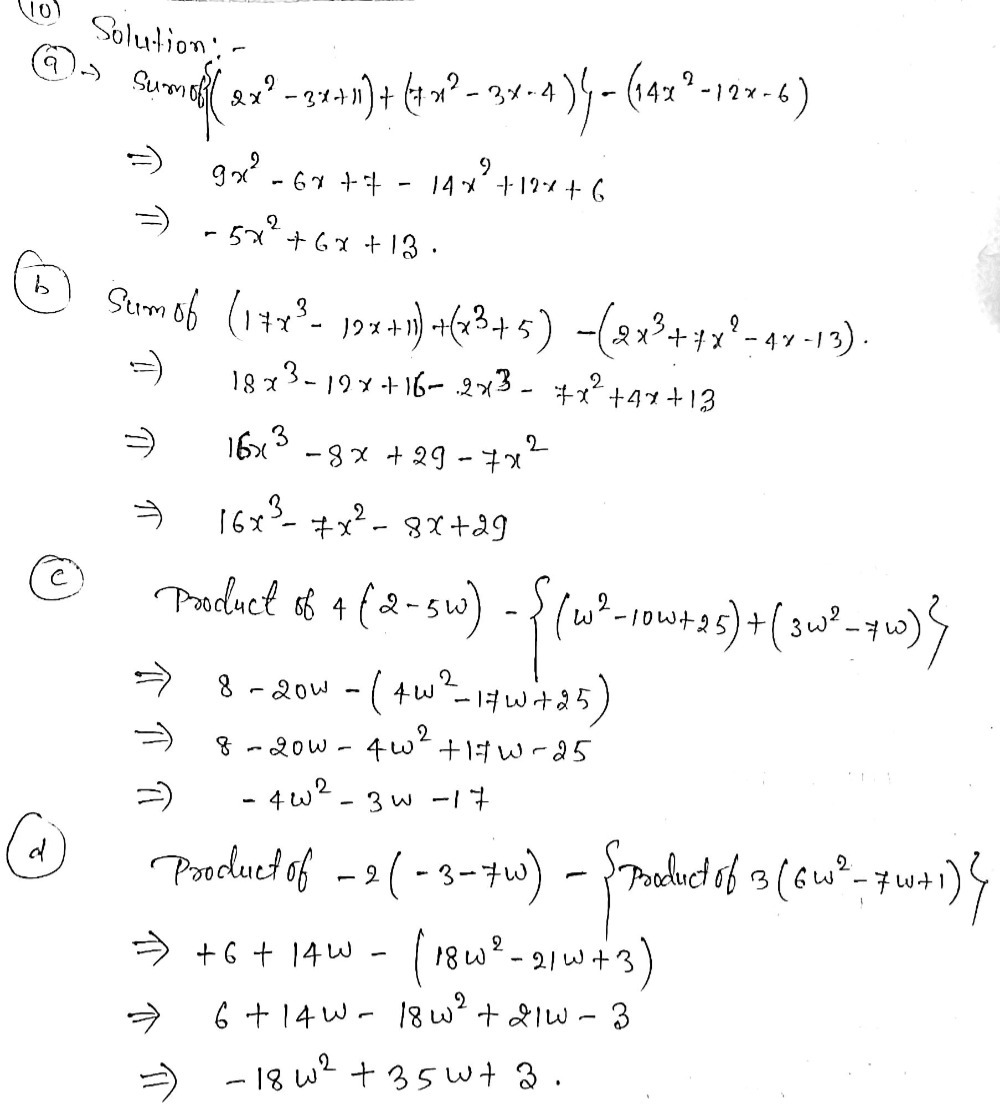 (10)
Solution:-
(a) → Sum of {(2x² - 3x + 11) + (7x² - 3x - 4)} - (14x² - 12x - 6)
⇒ 9x² - 6x + 7 - 14x² + 12x + 6
⇒ - 5x² + 6x + 13.
(b) Sum of (17x³ - 12x + 11) + (x³ + 5) - (2x³ + 7x² - 4x - 13).
⇒ 18x³ - 12x + 16 - 2x³ - 7x² + 4x + 13
⇒ 16x³ - 8x + 29 - 7x²
⇒ 16x³ - 7x² - 8x + 29
(c) Product of 4(2 - 5w) - {(w² - 10w + 25) + (3w² - 7w)}
⇒ 8 - 20w - (4w² - 17w + 25)
⇒ 8 - 20w - 4w² + 17w - 25
⇒ - 4w² - 3w - 17
(d) Product of - 2(- 3 - 7w) - {Product of 3(6w² - 7w + 1)}
⇒ + 6 + 14w - (18w² - 21w + 3)
⇒ 6 + 14w - 18w² + 21w - 3
⇒ - 18w² + 35w + 3.